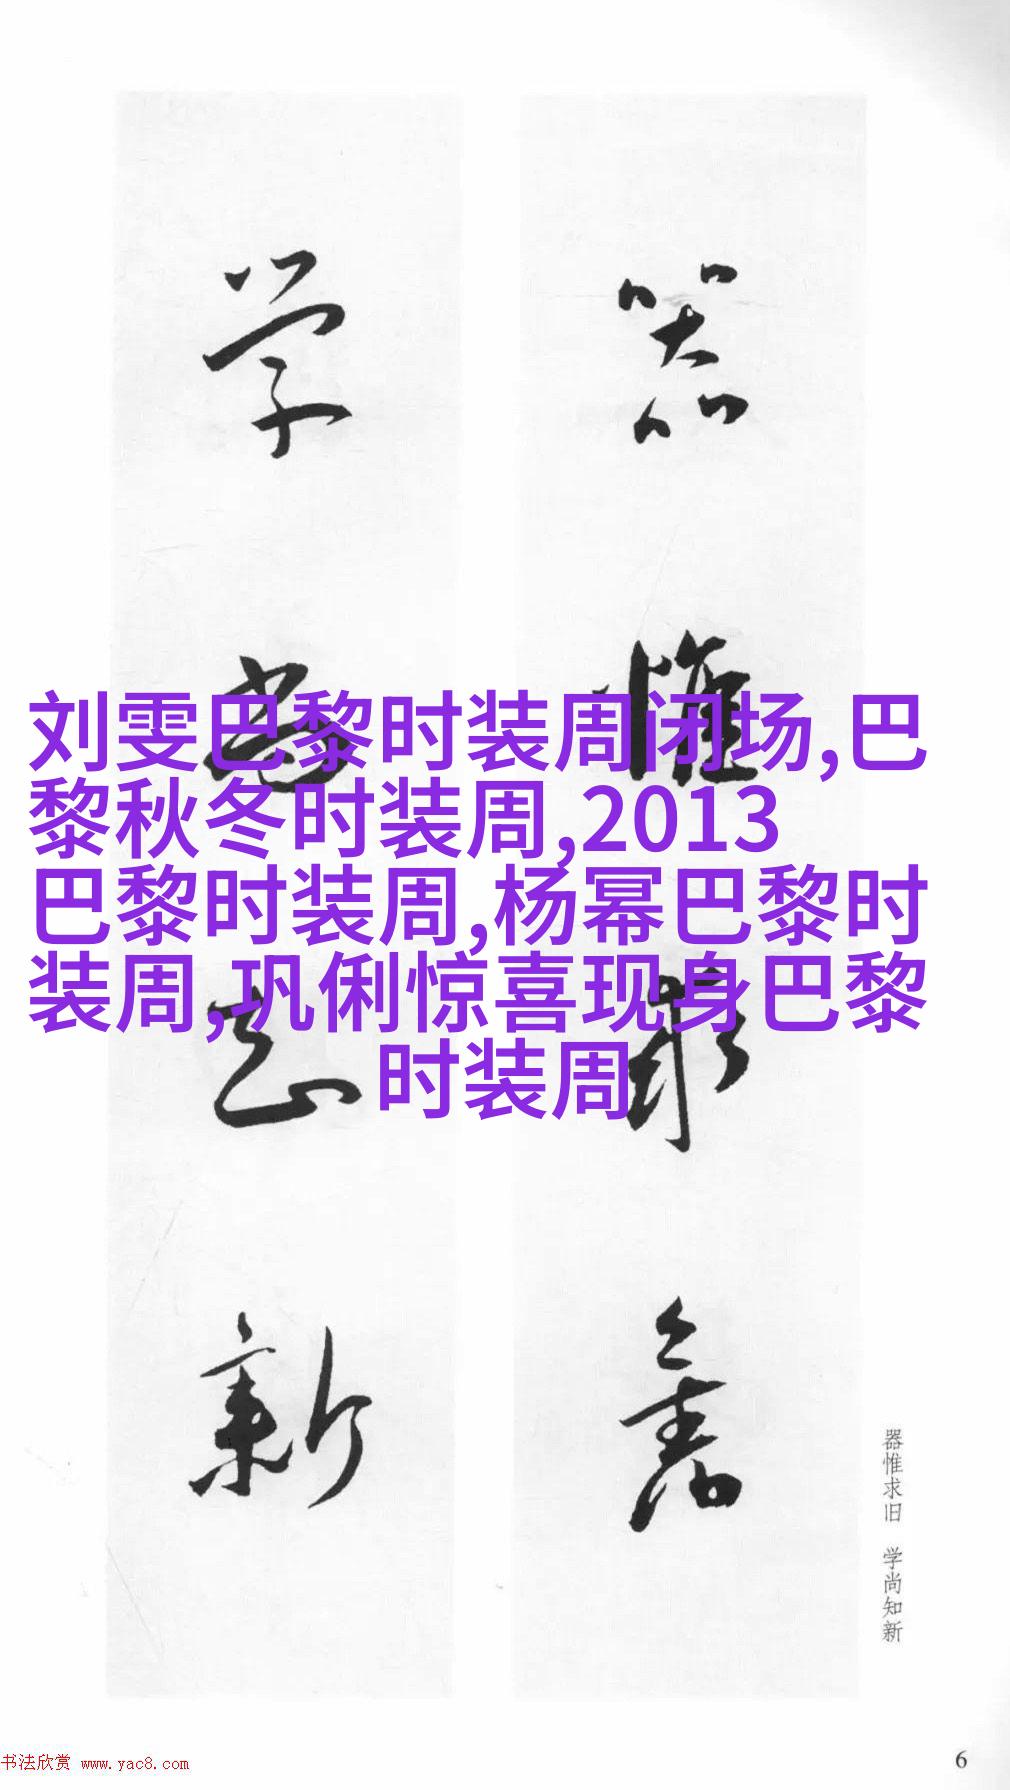 器惟求舊
学尚知新
刘雯巴黎时装周闭场,巴
黎秋冬时装周,2013
巴黎时装周,杨幂巴黎时
装周,巩俐惊喜现身巴黎
时装周
器惟求旧 学尚知新
书法欣赏 www.yac8.com
6